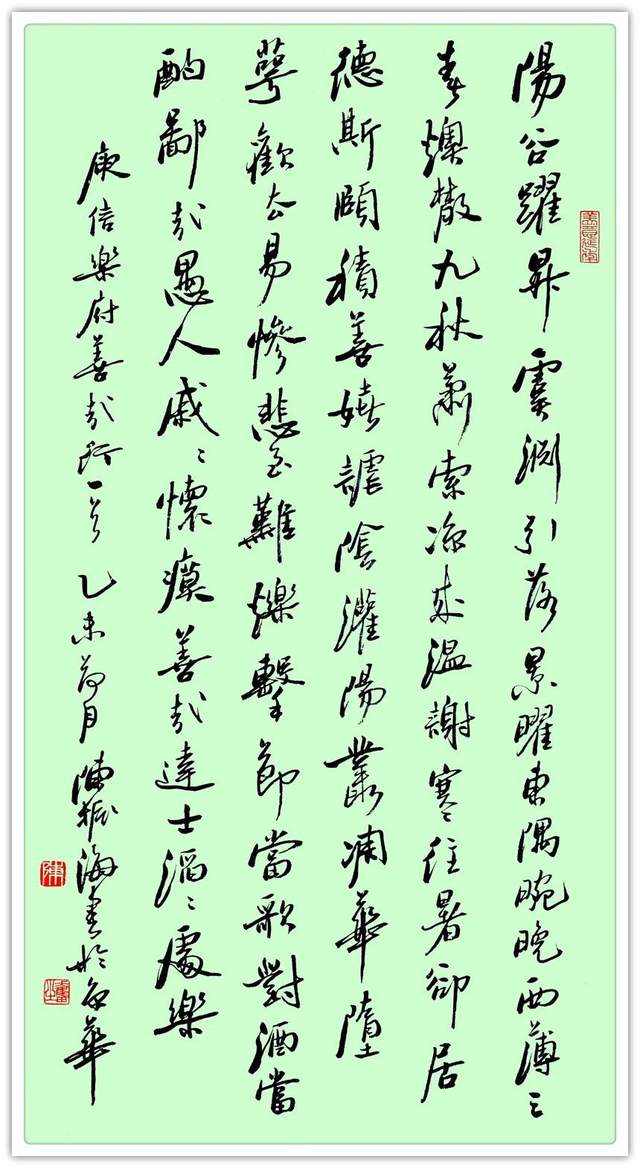 陽谷躍昇虞淵引落景曜東隅晼晚西薄三
春燠敷九秋蕭索涼來溫謝寒往暑卻居
德斯頤積善嬉謔陰灌陽叢凋華墮
萼歡去易慘悲至難爍擊節當歌對酒當
酌鄙哉愚人戚々懷瘼善哉達士滔々處樂
庾信樂府善哉行一首 乙未荷月陳振海書於京華